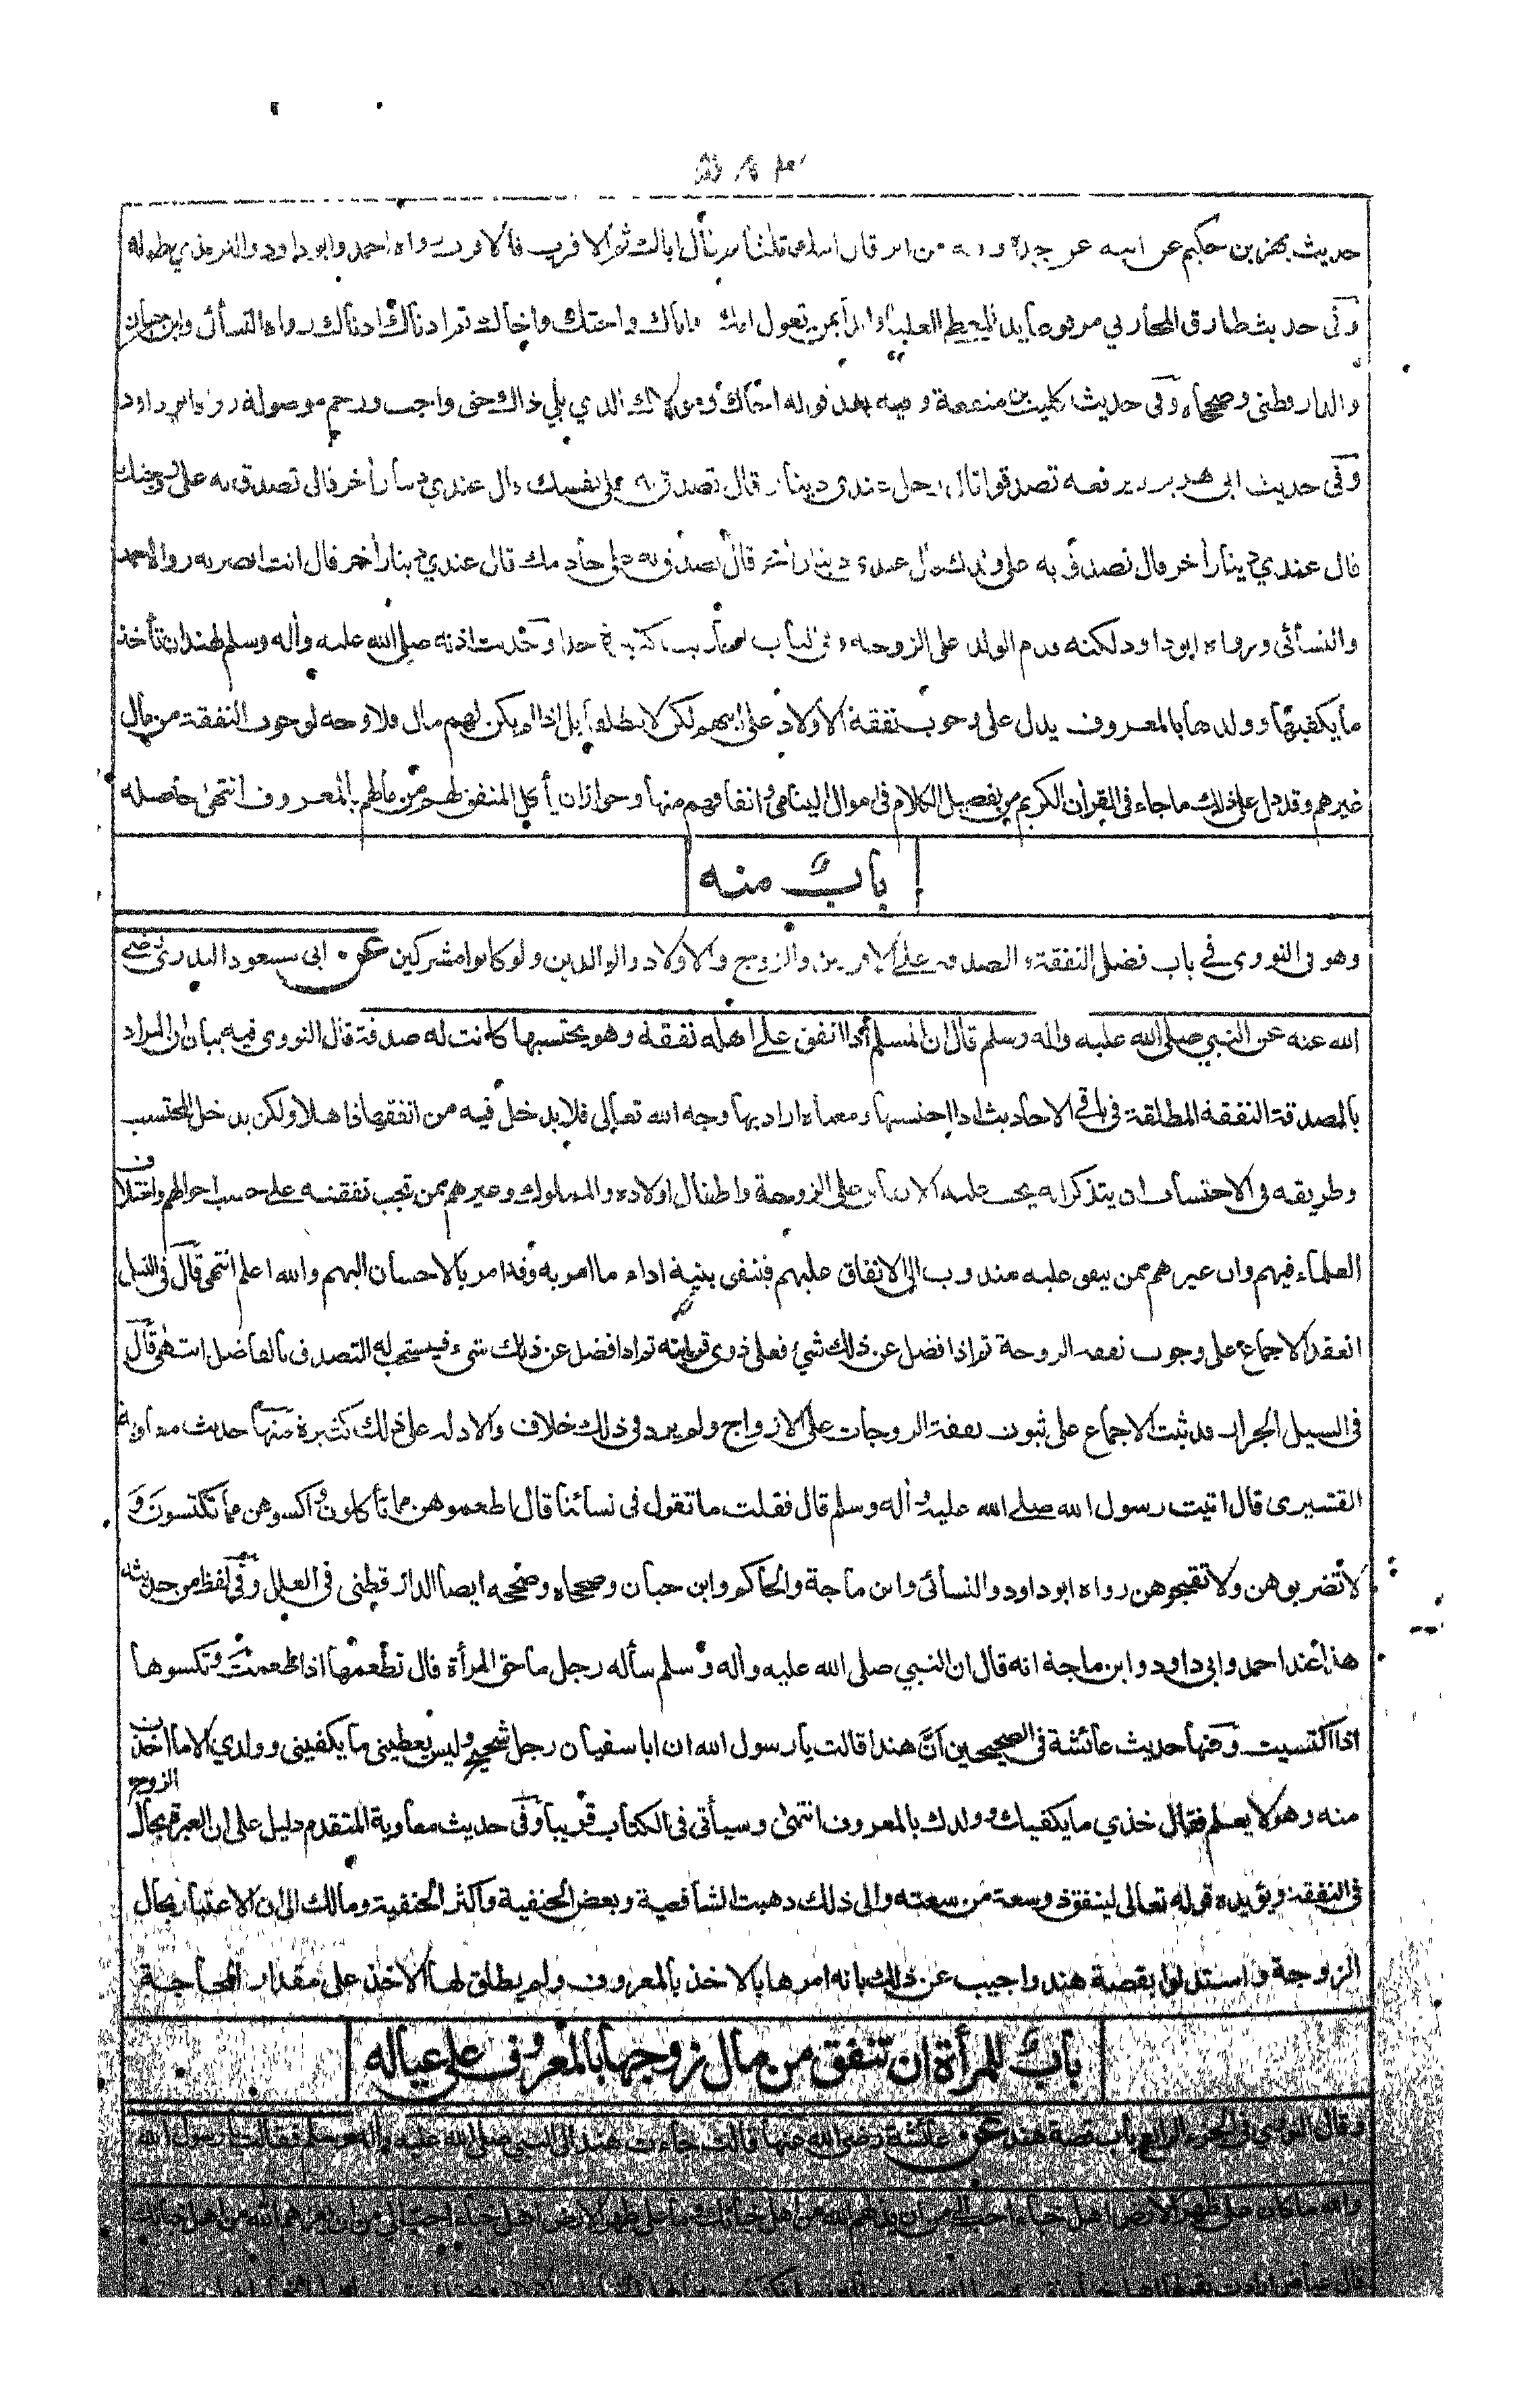 حديث بهز بن حكيم عن ابيه عن جده وفيه من ابر قال امك قلت ثم من قال اباك ثم الاقرب فالاقرب رواه احمد وابو داود والترمذي
وفى حديث طارق المحاربي مرفوعا يد المعطي العليا وابدأ بمن تعول امك واباك واختك واخاك ثم ادناك ادناك رواه النسائى وابن حبان
والدارقطنى وصححاه وفى حديث كليب بن منفعة وفيه بعد قوله اختك واخاك ومولاك الذي يلي ذاك حق واجب ورحم موصولة رواه ابو داود
وفى حديث ابى هريرة يرفعه تصدقوا قال رجل عندي دينار قال تصدق به على نفسك قال عندي دينار أخر قال تصدق به على زوجتك
قال عندي دينار أخر قال تصدق به على ولدك قال عندي دينار أخر قال تصدق به على خادمك قال عندي دينار أخر قال انت ابصر به رواه احمد
والنسائى ورواه ابو داود لكنه قدم الولد على الزوجة وفى الباب احاديث كثيرة جدا وحديث اذنه صلى الله عليه وأله وسلم لهند ان تأخذ
ما يكفيها وولدها بالمعروف يدل على وجوب نفقة الاولاد على ابيهم لكن لا مطلقا بل اذا لم يكن لهم مال فلا وجه لوجوب النفقة من مال
غيرهم وقد دل على ذلك ما جاء فى القرأن الكريم من تفصيل الكلام فى اموال اليتامى وانفاقهم منها وجواز ان يأكل المنفق لهم من مالهم بالمعروف انتهى حاصله
باب منه
وهو فى النووى فے باب فضل النفقة والصدقة علے الاقربين والزوج والاولاد والوالدين ولو كانوا مشركين عن ابى مسعود البدرى رضے
الله عنه عن النبي صلى الله عليه واله وسلم قال ان المسلم اذا انفق علے اهله نفقة وهو يحتسبها كانت له صدقة قال النووى فيه بيان ان المراد
بالصدقة النفقة المطلقة فى باقى الاحاديث اذا احتسبها ومعناه اراد بها وجه الله تعالى فلا يدخل فيه من انفقها ذاهلا ولكن يدخل المحتسب
وطريقه فى الاحتساب ان يتذكر انه يجب عليه الانفاق على الزوجة واطفال اولاده والمملوك وغيرهم ممن تجب نفقته على حسب احوالهم واختلاف
العلماء فيهم وان غيرهم ممن ينفق عليه مندوب الى الانفاق عليهم فينفق بنية اداء ما امر به وقد امر بالاحسان اليهم والله اعلم انتهى قال فى النيل
انعقد الاجماع على وجوب نفقة الزوجة ثم اذا فضل عن ذلك شئ فعلى ذوى قرابته ثم اذا فضل عن ذلك شئ فيستحب له التصدق بالفاضل انتهى قال
فى السيل الجرار قد ثبت الاجماع على ثبوت نفقة الزوجات على الازواج ولم يرد فى ذلك خلاف والادلة على ذلك كثيرة منها حديث معاوية
القشيرى قال اتيت رسول الله صلے الله عليه وأله وسلم قال فقلت ما تقول فى نسائنا قال اطعموهن مما تأكلون واكسوهن مما تكتسون و
لا تضربوهن ولا تقبحوهن رواه ابو داود والنسائى وابن ماجة والحاكم وابن حبان وصححاه وصححه ايضا الدارقطنى فى العلل وفى لفظ من حديثه
هذا عند احمد وابى داود وابن ماجة انه قال ان النبي صلى الله عليه وأله وسلم سأله رجل ما حق المرأة قال تطعمها اذا طعمت وتكسوها
اذا اكتسيت ومنها حديث عائشة فى الصحيحين ان هندا قالت يا رسول الله ان ابا سفيان رجل شحيح وليس يعطينى ما يكفينى وولدي الا ما اخذت
منه وهو لا يعلم فقال خذي ما يكفيك وولدك بالمعروف انتهى وسيأتى فى الكتاب قريبا وفى حديث معاوية المتقدم دليل على ان العبرة بحال الزوج
فى النفقة ويؤيده قوله تعالى لينفق ذو سعة من سعته والى ذلك ذهبت الشافعية وبعض الحنفية واكثر الحنفية ومالك الى ان الاعتبار بحال
الزوجة واستدلوا بقصة هند واجيب عن ذلك بانه امرها بالاخذ بالمعروف ولم يطلق لها الاخذ على مقدار الحاجة
باب للمرأة ان تنفق من مال زوجها بالمعروف على عياله
وقال النووي فى الجزء الرابع باب قصة هند عن عائشة رضى الله عنها قالت جاءت هند الى النبي صلى الله عليه وأله وسلم فقالت يا رسول الله
والله ما كان على ظهر الارض اهل خباء احب الى من ان يذلهم الله من اهل خبائك وما على ظهر الارض اهل خباء احب الى من ان يعزهم الله من اهل خبائك